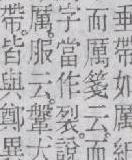 垂帶如厲
而厲箋云而厲
字當作裂說
厲服云鞶大
帶皆與鄭異